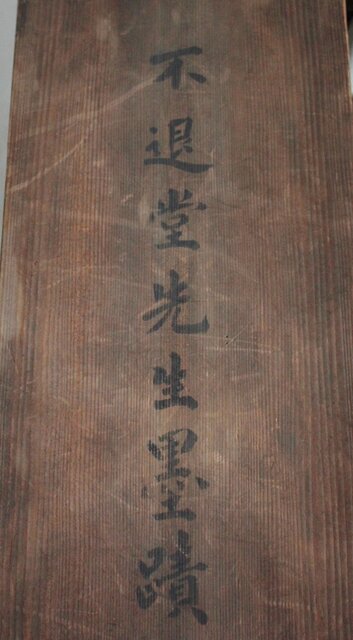 不退堂先生墨蹟